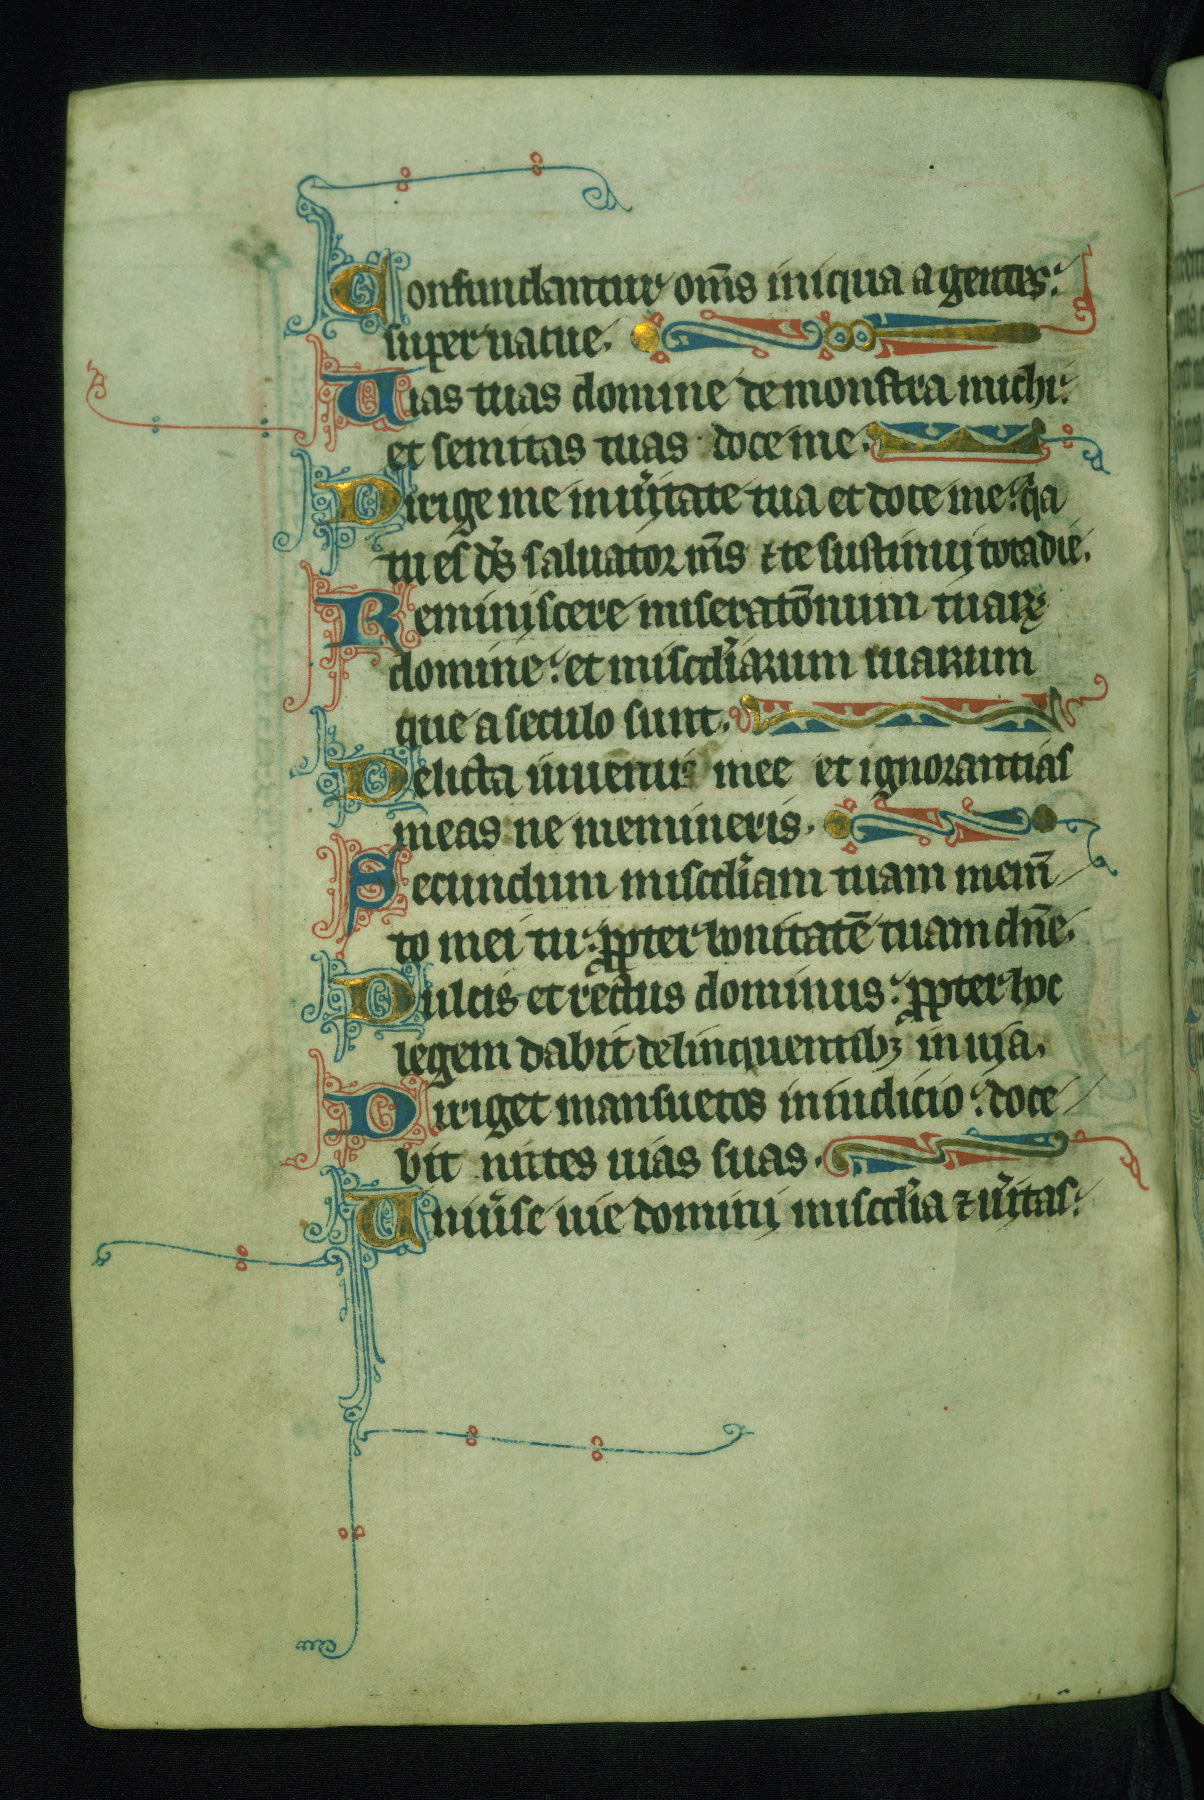 Confundantur om̅s iniqua agentes:
super uacue.
Uias tuas domine demonstra michi:
et semitas tuas doce me.
Dirige me in uͥitate tua et doce me: qͥa
tu es ds̅ saluator ms̅ ⁊ te sustinui tota die.
Reminiscere miserato̅num tuaꝝ
domine: et miscd̅iarum tuarum
que a seculo sunt.
Delicta iuuentutis mee et ignorantias
meas ne memineris.
Secundum miscd̅iam tuam mem̅
to mei tu: ꝓpter bonitate̅ tuam dn̅e.
Dulcis et rectus dominus: ꝓpter hoc
legem dabit delinquentibꝫ in uia.
Diriget mansuetos in iudicio: doce
bit mites uias suas.
Uniuͥse uie domini miscd̅ia ⁊ uͥitas: